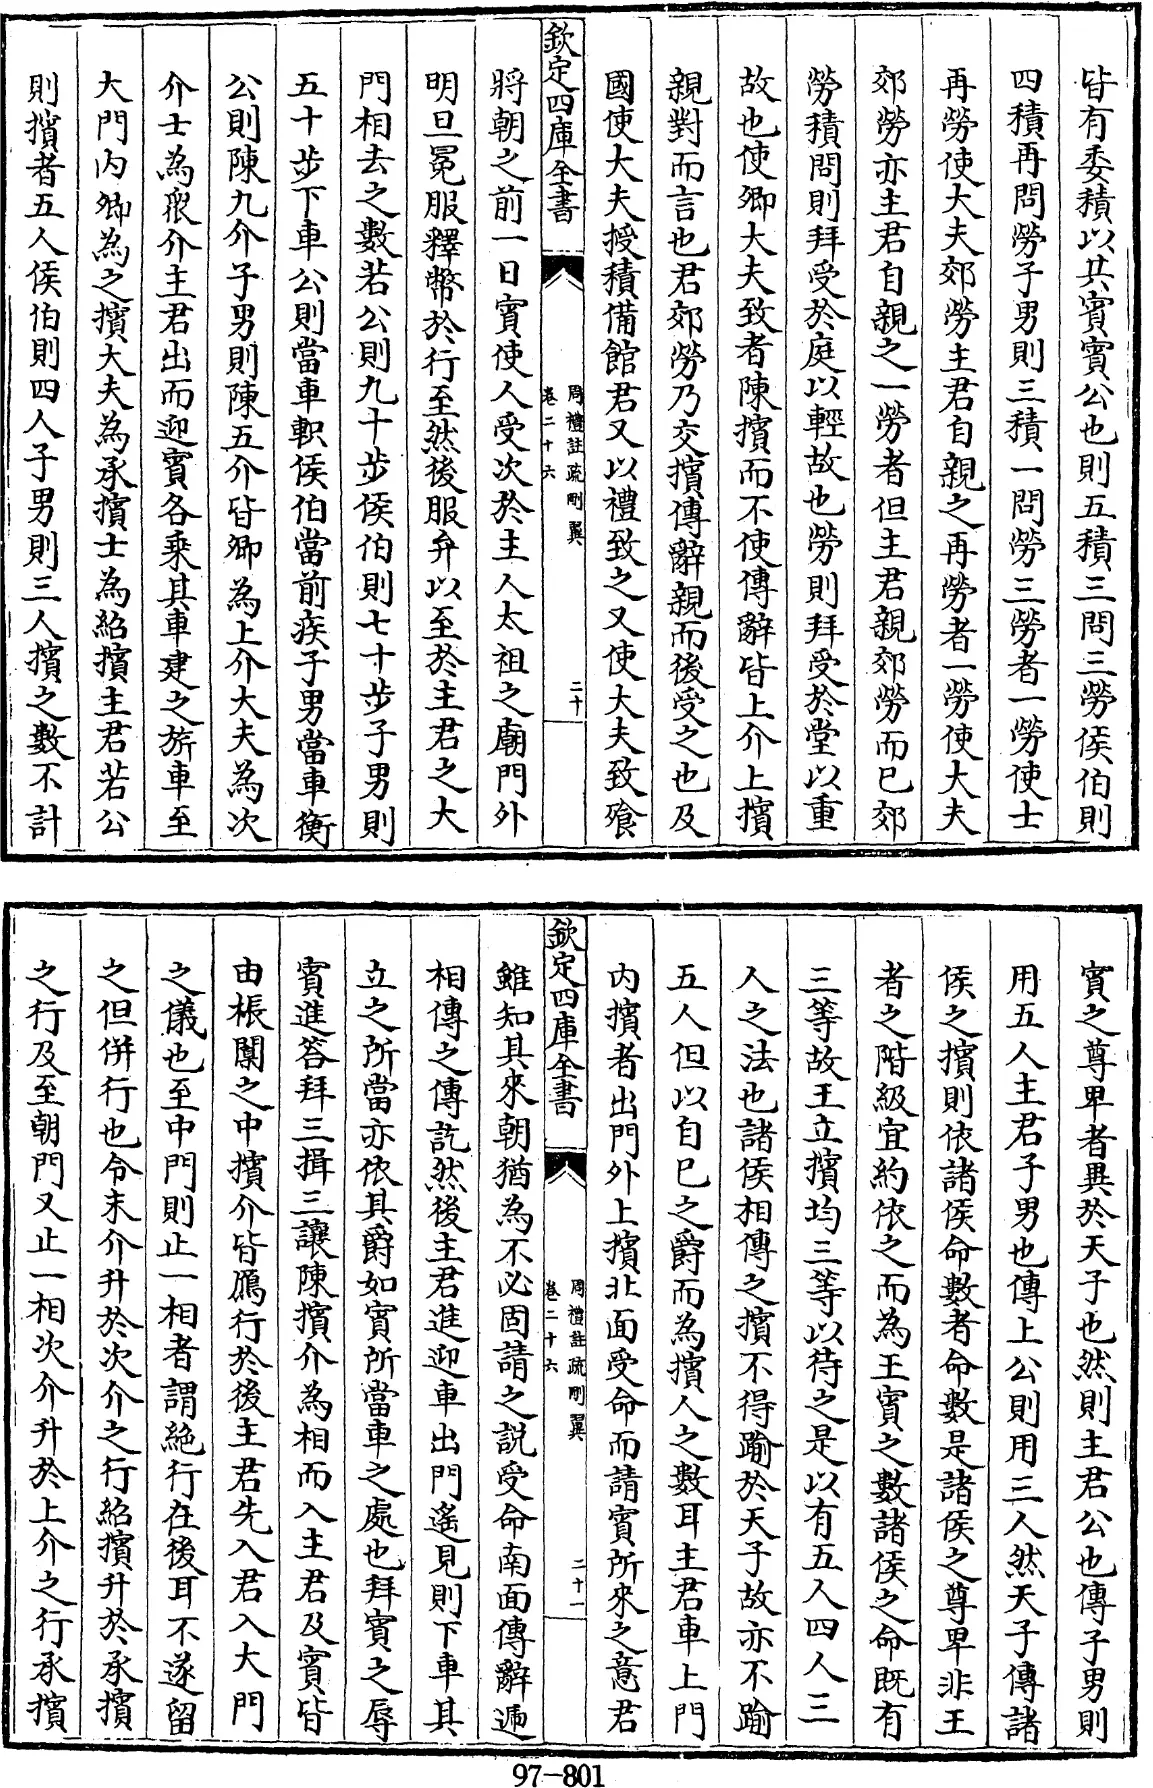 皆有委積以其賓賓公也則五積三問三勞侯伯則
四積再問勞子男則三積一問勞三勞者一勞使士
再勞使大夫郊勞主君自親之再勞者一勞使大夫
郊勞亦主君自親之一勞者但主君親郊勞而已郊
勞積問則拜受於庭以輕故也勞則拜受於堂以重
故也使卿大夫致者陳擯而不使傳辭皆上介上擯
親對而言也君郊勞乃交擯傳辭親而後受之也及
國使大夫授積備館君又以禮致之又使大夫致飱
欽定四庫全書
周禮註疏刪翼
卷二十六
二十
將朝之前一日賓使人受次於主人太祖之廟門外
明旦冕服釋幣於行至然後服弁以至於主君之大
門相去之數若公則九十步侯伯則七十步子男則
五十步下車公則當車軹侯伯當前疾子男當車衡
公則陳九介子男則陳五介皆卿為上介大夫為次
介士為衆介主君出而迎賓各乘其車建之旂車至
大門内卿為之擯大夫為承擯士為紹擯主君若公
則擯者五人侯伯則四人子男則三人擯之數不計
賓之尊卑者異於天子也然則主君公也傳子男則
用五人主君子男也傳上公則用三人然天子傳諸
侯之擯則依諸侯命數者命數是諸侯之尊卑非王
者之階級宜約依之而為王賓之數諸侯之命既有
三等故王立擯均三等以待之是以有五人四人三
人之法也諸侯相傳之擯不得踰於天子故亦不踰
五人但以自已之爵而為擯人之數耳主君車上門
内擯者出門外上擯北面受命而請賓所來之意君
欽定四庫全書
周禮註疏刪翼
卷二十六
二十一
雖知其來朝猶為不必固請之説受命南面傳辭逓
相傳之傳訖然後主君進迎車出門遙見則下車其
立之所當亦依其爵如賓所當車之處也拜賓之辱
賓進答拜三揖三讓陳擯介為相而入主君及賓皆
由棖闑之中擯介皆鴈行於後主君先入君入大門
之儀也至中門則止一相者謂絶行在後耳不遂留
之但併行也令末介升於次介之行紹擯升於承擯
之行及至朝門又止一相次介升於上介之行承擯
97-801